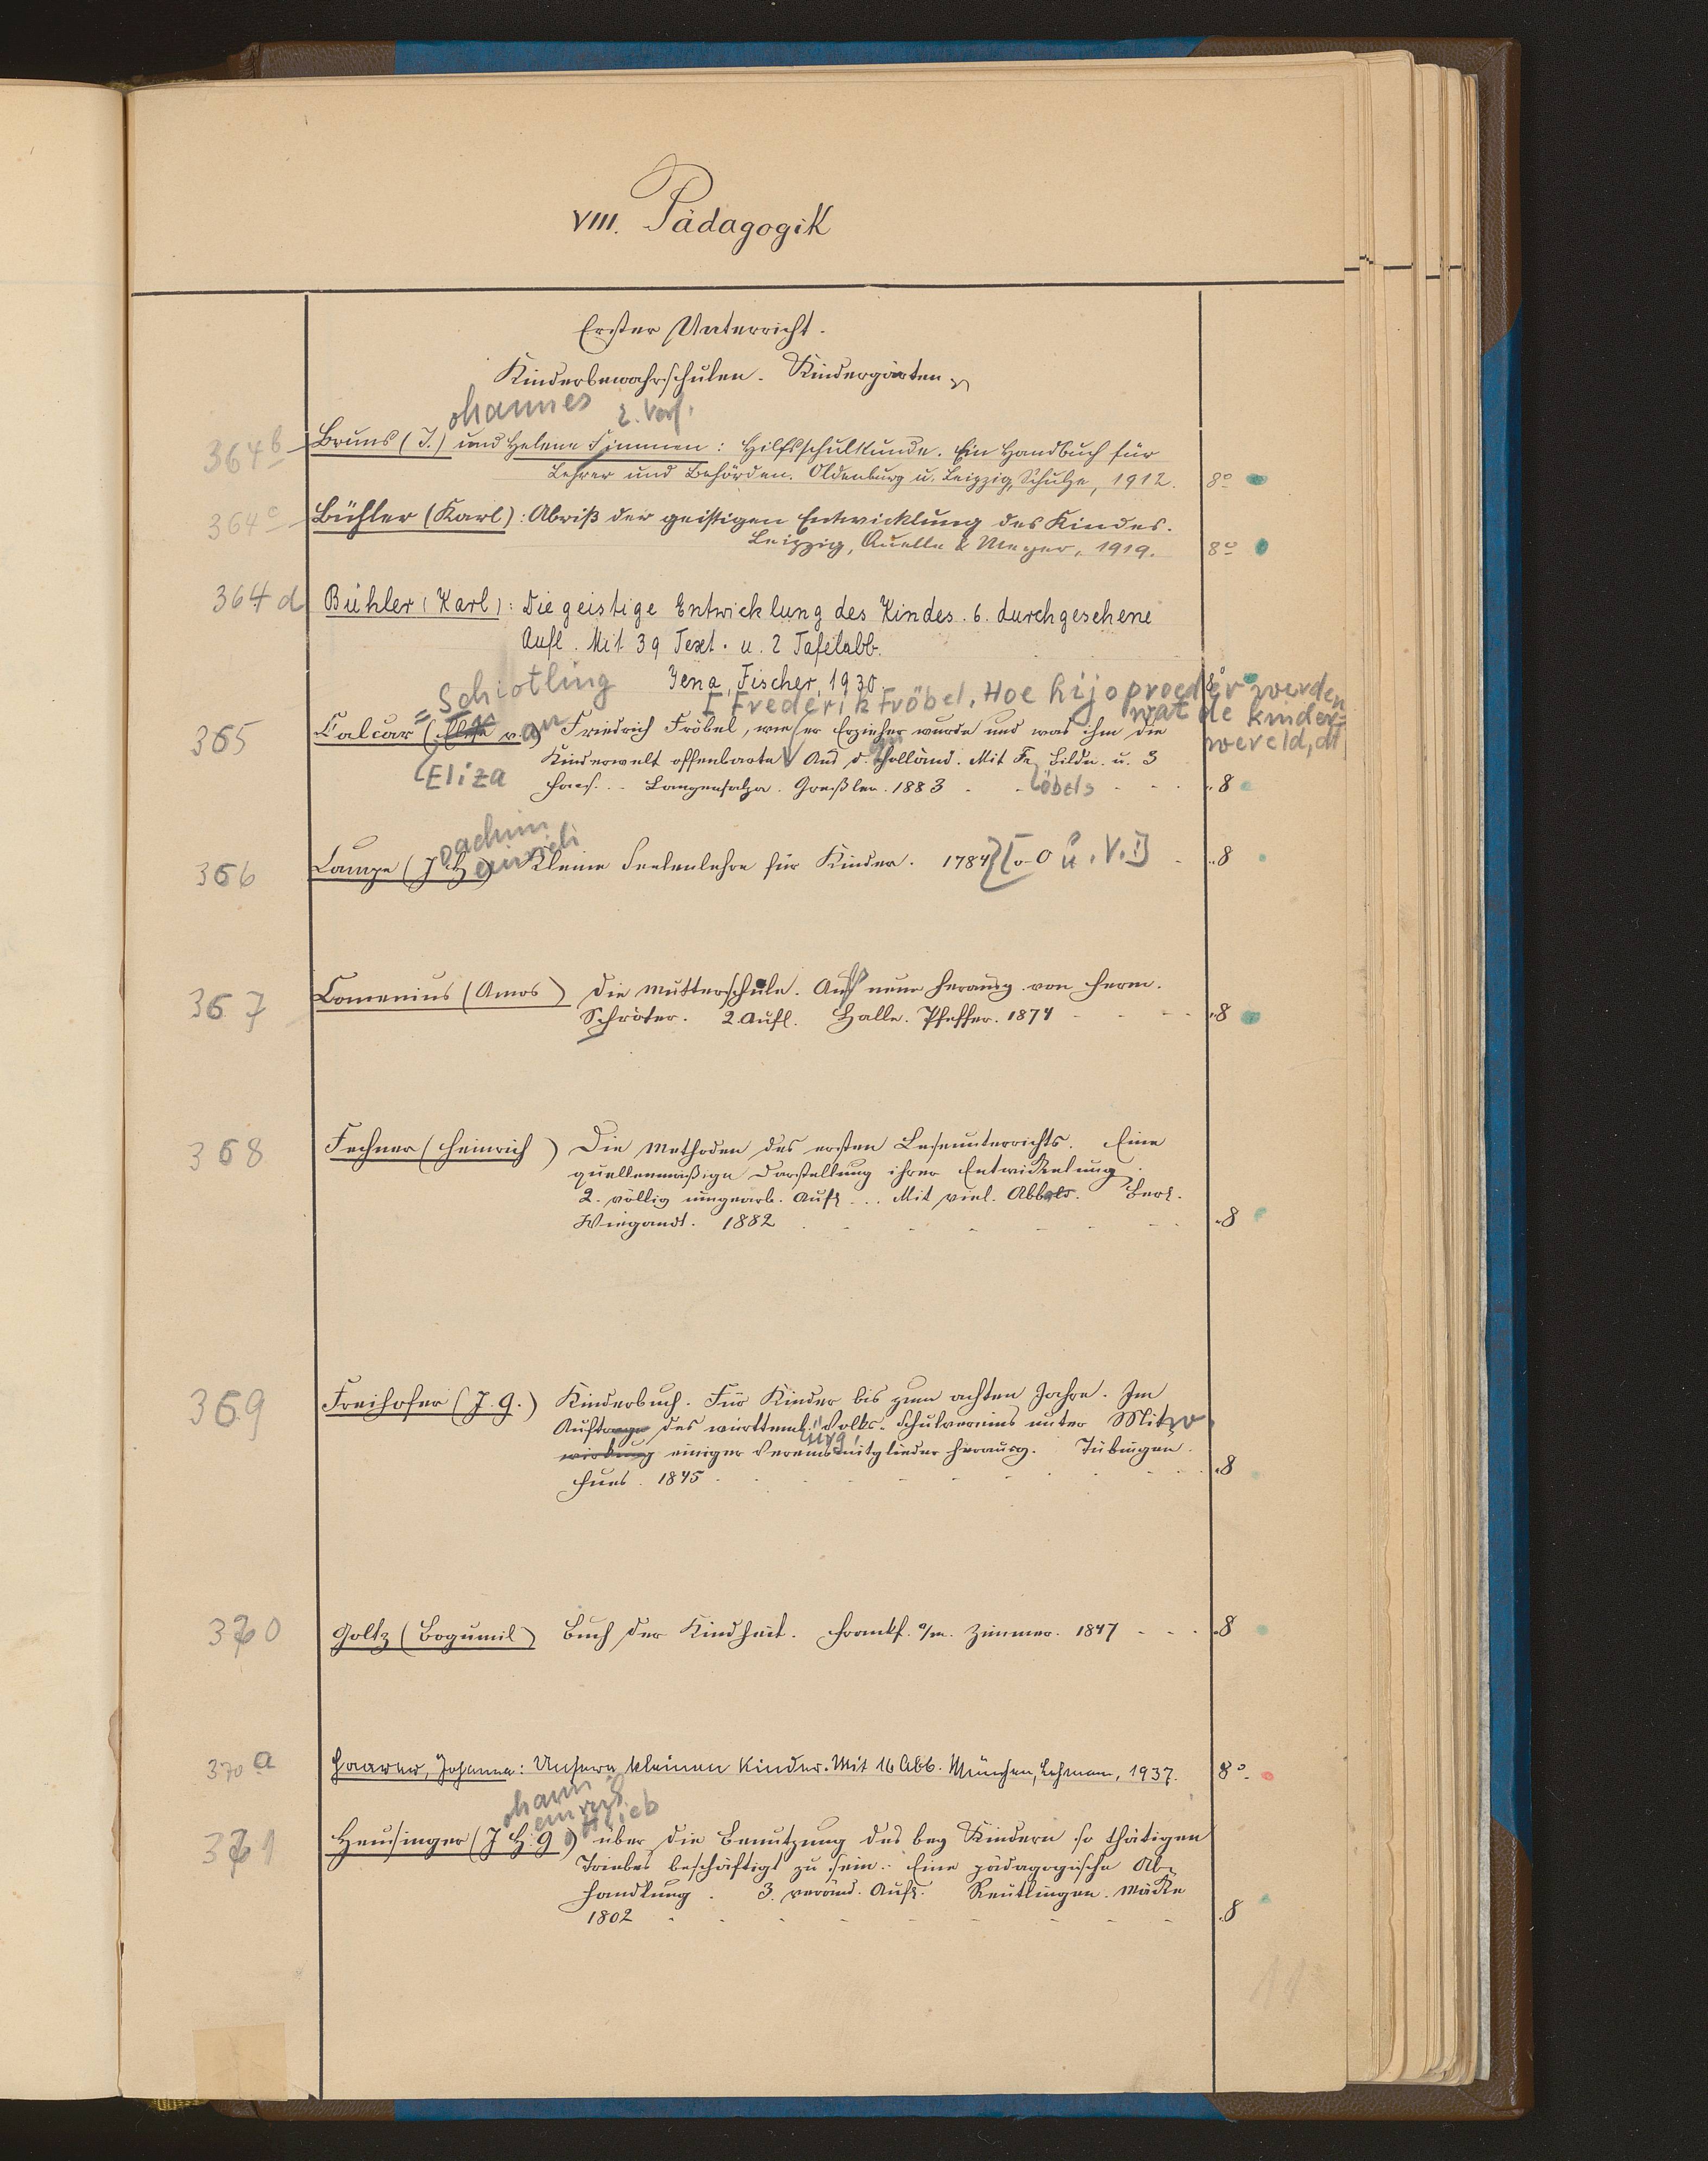 VIII. Pädagogik
Erster Unterricht.
Kinderbewahrschulen. Kindergärten
ohannes 2. Verf.
364b Bruns (J.) und Helene Simmen: Hilfsschulkunde. Ein Handbuch für
Lehrer und Behörden. Oldenburg u. Leipzig, Schulze, 1912. 8°
364c Bühler (Karl): Abriß der geistigen Entwicklung des Kindes.
Leipzig, Quelle & Meyer, 1919. 8°
364d Bühler (Karl): Die geistige Entwicklung des Kindes. 6. durchgesehene
Aufl. Mit 39 Text- u. 2 Tafelabb.
Jena, Fischer, 1930. 8°
= Schiotling
[Frederik Fröbel, Hoe hij opvoeder werden
wat de kinder=
wereld, dt.
365 Calcar (Elise van) Friedrich Fröbel, wie er Erzieher wurde und was ihm die
Kinderwelt offenbarte Aus d. Holländ. Mit Fr Bildn. u. 3
Eliza
Facs. - Langensalza. Greßler. 1883 öbels 8
oachim
einrich
366 Campe (J H) Kleine Seelenlehre für Kinder. 1784 [o. O u. V.] 8
367 Comenius (Amos) Die Mutterschule. Aufs neue herausg. von Herm.
Schröter. 2. Aufl. Halle. Pfeffer. 1874 8
368 Fechner (Heinrich) Die Methoden des ersten Leseunterrichts. Eine
quellenmäßige Darstellung ihrer Entwickelung.
2. völlig umgearb. Aufl. .. Mit viel. Abb. Berl.
Wiegandt. 1882 8
369 Freihofer (J. G.) Kinderbuch. Für Kinder bis zum achten Jahre. Im
Auftrage des württemb. Volks-Schulvereins unter Mitw
wirkung einiger Vereinsmitglieder herausg. Tübingen.
Fues. 1845 8
370 Goltz (Bogumil) Buch der Kindheit. Frankf. a/m. Zimmer. 1847 8
370a Haarer, Johanna: Unsere kleinen Kinder. Mit 16 Abb. München, Lehmann, 1937. 8°
ohann
einrich
ottlieb
371 Heusinger (J H. G) über die Benutzung des bey Kindern so thätigen
Triebes beschäftigt zu sein. Eine pädagogische Ab=
handlung. 3. veränd. Aufl. Reutlingen. Mäcke
1802 8
11